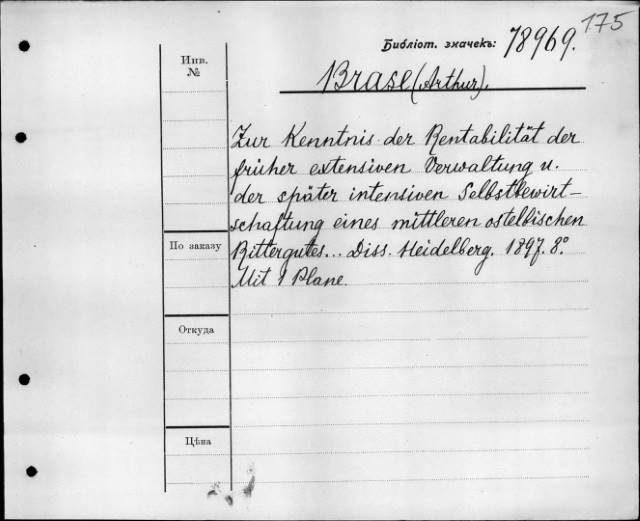 175
Библіот. значекъ: 78969.
Инв.
№
Brase (Arthur).
Zur Kenntnis der Rentabilität der
früher extensiven Verwaltung u.
der später intensiven Selbstbewirt-
schaftung eines mittleren ostelbischen
По заказу
Rittergutes... Diss. Heidelberg. 1897. 8°
Mit 1 Plane.
Откуда
Цѣна